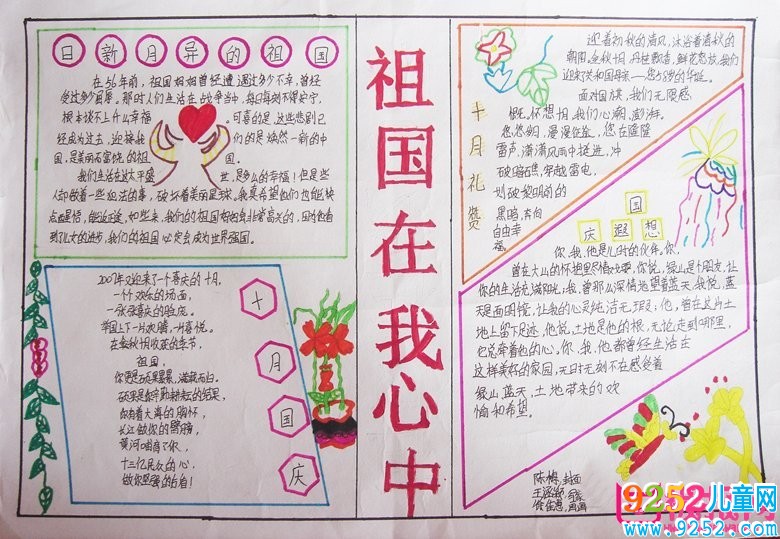 日新月异的祖国
在56年前，祖国妈妈曾经遭遇过多少不幸，曾经
受过多少屈辱。那时人们生活在战争当中，每日每刻不得安宁，
根本谈不上什么幸福
可喜的是，这些悲剧已
经成为过去，迎接我
们的是焕然一新的中
国，是美丽而富饶的祖
国。
我们生活在这太平盛
世，是多么的幸福！但是些
人却做着一些
的事，破坏着美丽星球。我真希望他们也能快
点
我们的祖国
到儿女的进步，我们的祖国心定会成为世界强国。
2007年又迎来了一个喜庆的十月，
一个欢乐的场面，
一张张喜庆的脸庞。
举国上下一片欢腾，一片喜悦。
在金秋十月收获的季节，
祖国，
你更是硕果累累，满载而归。
硕果是你辛勤耕耘的结果，
你有着大海的胸怀，
长江做你的臂膀，
黄河唱商了你，
十三亿民众的心，
做你坚强的后盾！
十月国庆
祖国在我心中
十月礼赞
迎着初秋的清风，沐浴着清秋的
朝阳，金秋十月，丹桂飘香，鲜花怒放，我们
迎来了共和国母亲——您58岁的华诞。
面对国旗，我们无限感
慨。怀想明月，我们心潮澎湃。
悠悠岁月，漫漫征途，您在隆隆
雷声，潇潇风雨中挺进，冲
破暗礁，穿越雷电，
划破黎明前的
黑暗，去向
自由幸
福。
国庆遐想
你、我、他是儿时的伙伴。你，
曾在大山的怀抱里尽情欢耍，你说，绿山是个朋友，让
你的生活充满阳光；我，曾那么深情地望着蓝天，我说，蓝
天是面明镜，让我的心灵纯洁无瑕；他，曾在这片土
地上留下足迹，他说，土地是他的根，无论走到哪里，
它总牵着他的心。你、我、他都曾经生活在
这样美好的家园，无时无刻不在感受着
绿山蓝天，土地带来的欢
愉和希望。
9252儿童网
www.9252.com